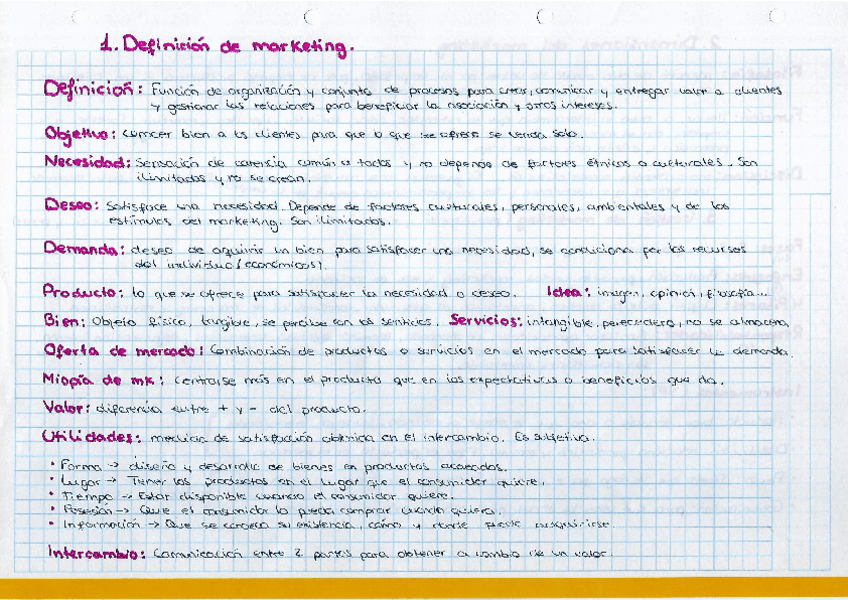 1. Definición de marketing.
Definición: Función de organización y conjunto de procesos para crear, comunicar y entregar valor a clientes
y gestionar las relaciones para beneficiar la asociación y otros intereses.
Objetivo: Conocer bien a los clientes para que lo que se ofrece se venda solo.
Necesidad: Sensación de carencia común a todos y no depende de factores étnicos o culturales. Son
ilimitados y no se crean.
Deseo: Satisface una necesidad. Depende de factores culturales, personales, ambientales y de los
estímulos del marketing. Son ilimitados.
Demanda: deseo de adquirir un bien para satisfacer una necesidad, se condiciona por los recursos
del individuo (económicos).
Producto: lo que se ofrece para satisfacer la necesidad o deseo. Idea: imagen, opinión, filosofía...
Bien: Objeto físico, tangible, se percibe con los sentidos. Servicios: intangible, perecedero, no se almacena
Oferta de mercado: Combinación de productos o servicios en el mercado para satisfacer la demanda.
Miopía de mk: Centrarse más en el producto que en las expectativas o beneficios que da.
Valor: diferencia entre + y - del producto.
Utilidades: medida de satisfacción obtenida en el intercambio. Es subjetiva.
· Forma → diseño y desarrollo de bienes en productos acabados.
· Lugar → Tener los productos en el lugar que el consumidor quiere.
· Tiempo → Estar disponible cuando el consumidor quiere.
· Posesión → Que el consumidor lo pueda comprar cuando quiera.
· Información → Que se conozca su existencia, cómo y donde puede adquirirse.
Intercambio: Comunicación entre 2 partes para obtener a cambio de un valor.